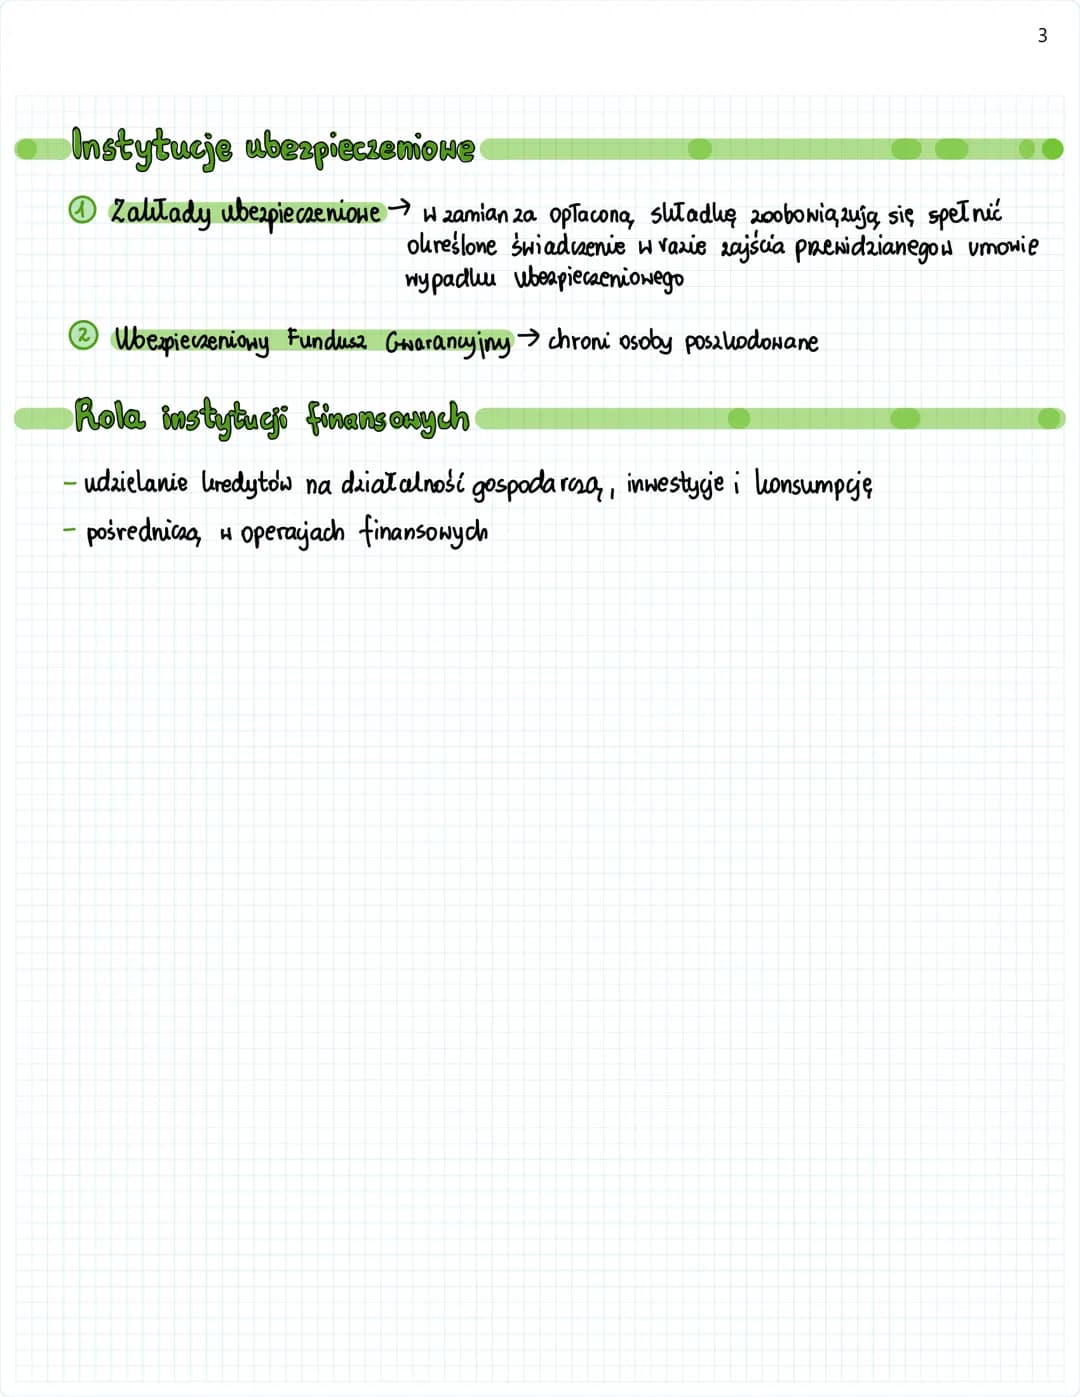 3
Instytucje ubezpieczeniowe
1 Zakłady ubezpieczeniowe → w zamian za opłaconą składkę zoobowiązują się spełnić
określone świadczenie w razie zajścia przewidzianego w umowie
wypadku ubezpieczeniowego
2 Ubezpieczeniowy Fundusz Gwarancyjny → chroni osoby poszkodowane
Rola instytucji finansowych
- udzielanie kredytów na działalność gospodarczą, inwestycje i konsumpcję
- pośredniczą w operacjach finansowych